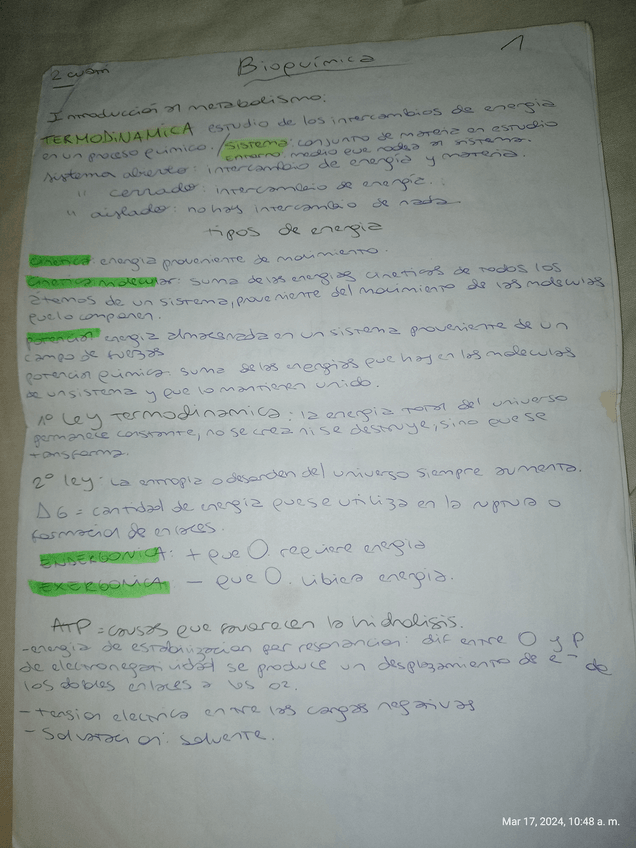 1
2 cuam
Bioquímica
Introducción al metabolismo:
TERMODINAMICA estudio de los intercambios de energia
en un proceso químico. / Sistema: conjunto de materia en estudio
entorno: medio que rodea al sistema.
sistema abierto: intercambio de energia y materia.
" cerrado: intercambio de energia.
" aislado: no hay intercambio de nada
tipos de energia
cinetica: energia proveniente de movimiento.
cinetica molecular: suma de las energias cineticas de todos los
atomos de un sistema, proveniente del movimiento de las moleculas
que lo componen.
potencial energia almacenada en un sistema proveniente de un
campo de fuerzas
potencial quimica: suma de las energias que hay en las moleculas
de un sistema y que lo mantienen unido.
1º Ley termodinamica: la energia total del universo
permanece constante, no se crea ni se destruye, sino que se
transforma.
2º ley: La entropia o desorden del universo siempre aumenta.
ΔG = cantidad de energia que se utiliza en la ruptura o
formacion de enlaces.
ENDERGONICA: + que 0. requiere energia
EXERGONICA - que 0. libera energia.
ATP = causas que favorecen la hidrolisis.
- energia de estabilizacion por resonancia: dif entre O y P
de electronegatividad se produce un desplazamiento de e⁻ de
los dobles enlaces a los O2.
- tension electrica entre las cargas negativas
- Solvatacion: solvente.
Mar 17, 2024, 10:48 a. m.